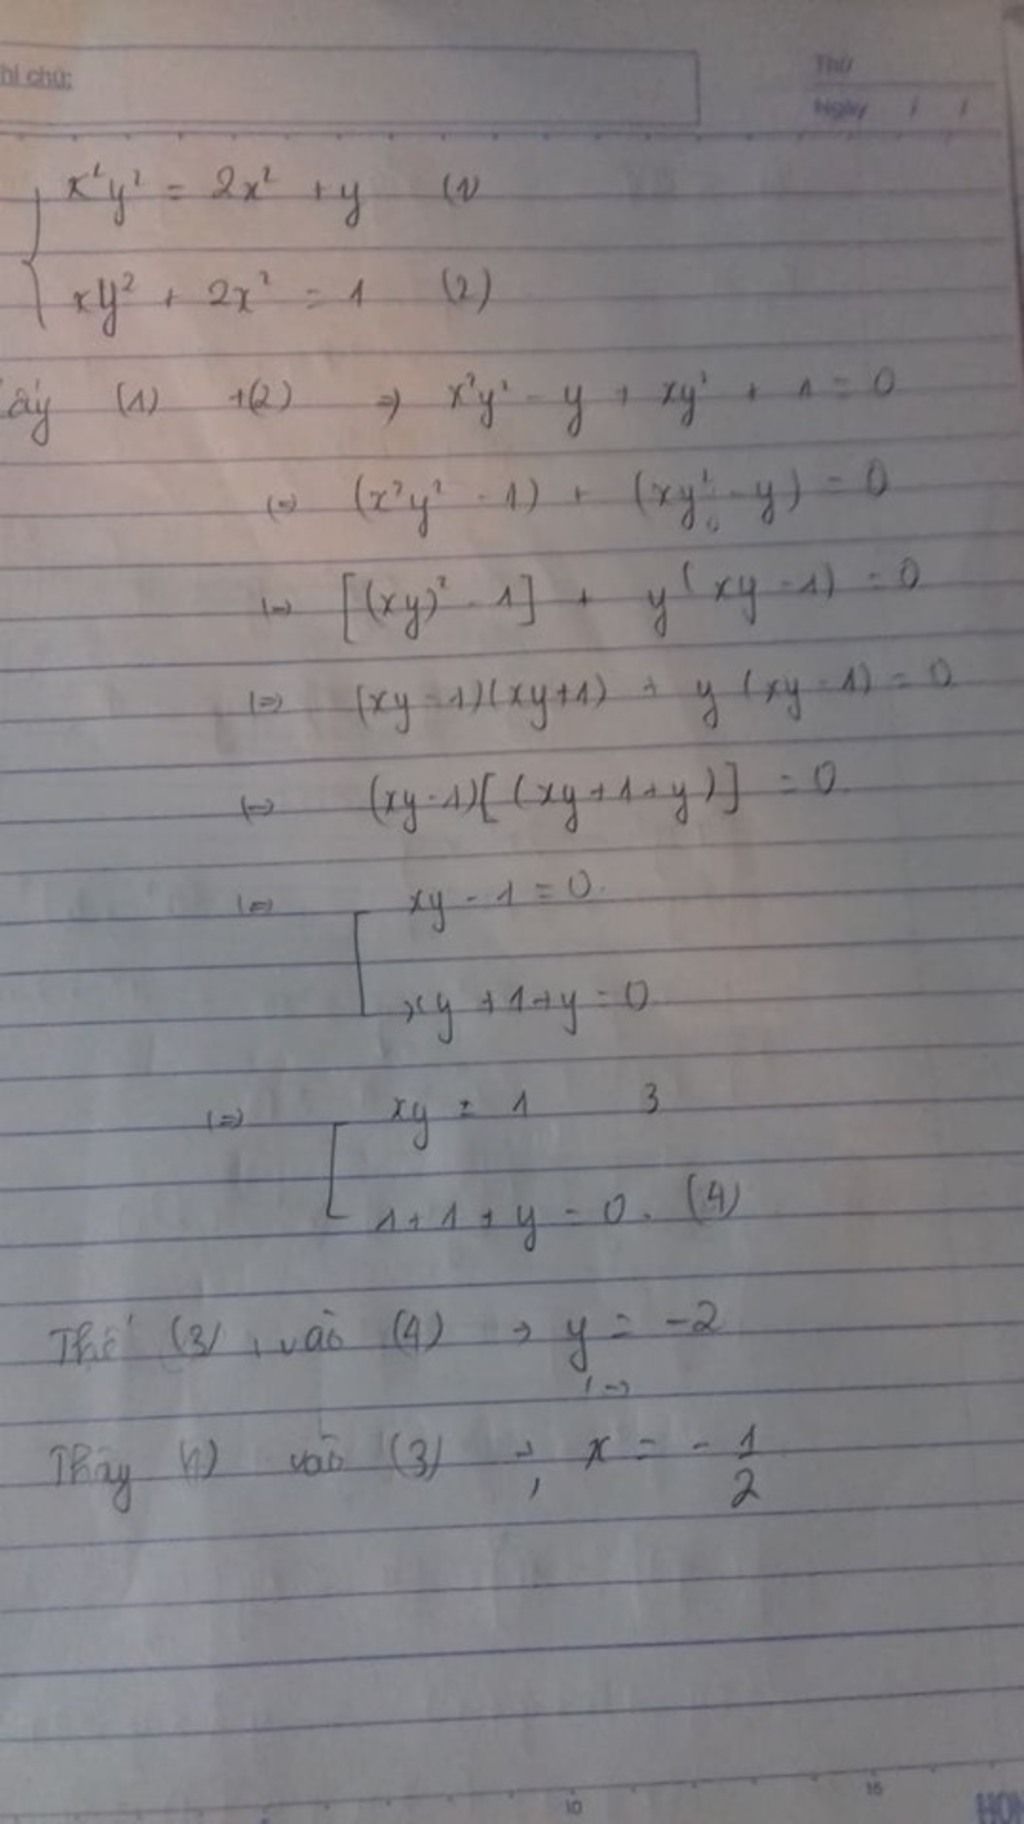 hi chú:
Thứ
Ngày / /
x²y² = 2x² + y (1)
xy² + 2x² = 1 (2)
ấy (1) +(2) => x²y² - y + xy² + 1 = 0
(=) (x²y² - 1) + (xy² - y) = 0
(=) [(xy)² - 1] + y(xy - 1) = 0
(=) (xy - 1)(xy+1) + y(xy - 1) = 0
(=) (xy - 1)[(xy + 1 + y)] = 0
(=) xy - 1 = 0.
xy + 1 + y = 0
(=) xy = 1 3
1 + 1 + y = 0. (4)
Thế (3) vào (4) → y = -2
(=)
Thay vào (3) → x = - 1/2
10
15